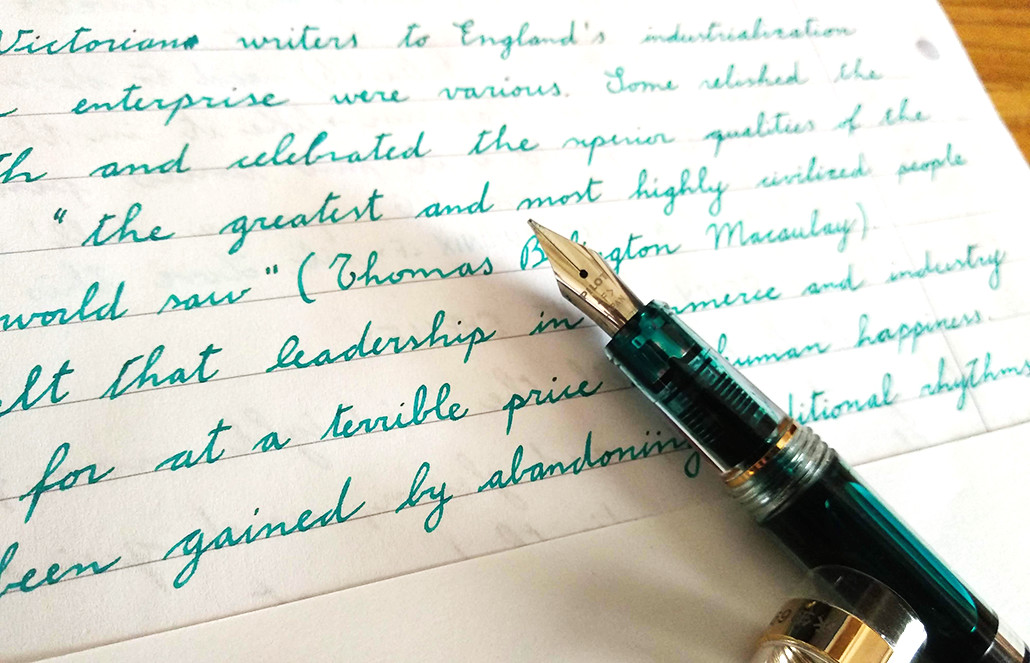 Victorian writers to England's industrialization
enterprise were various. Some relished the
th and celebrated the superior qualities of the
"the greatest and most highly civilized people
world saw" (Thomas B ington Macaulay).
elt that leadership in mmerce and industry
for at a terrible price human happiness.
been gained by abandoning ditional rhythms
PILOT